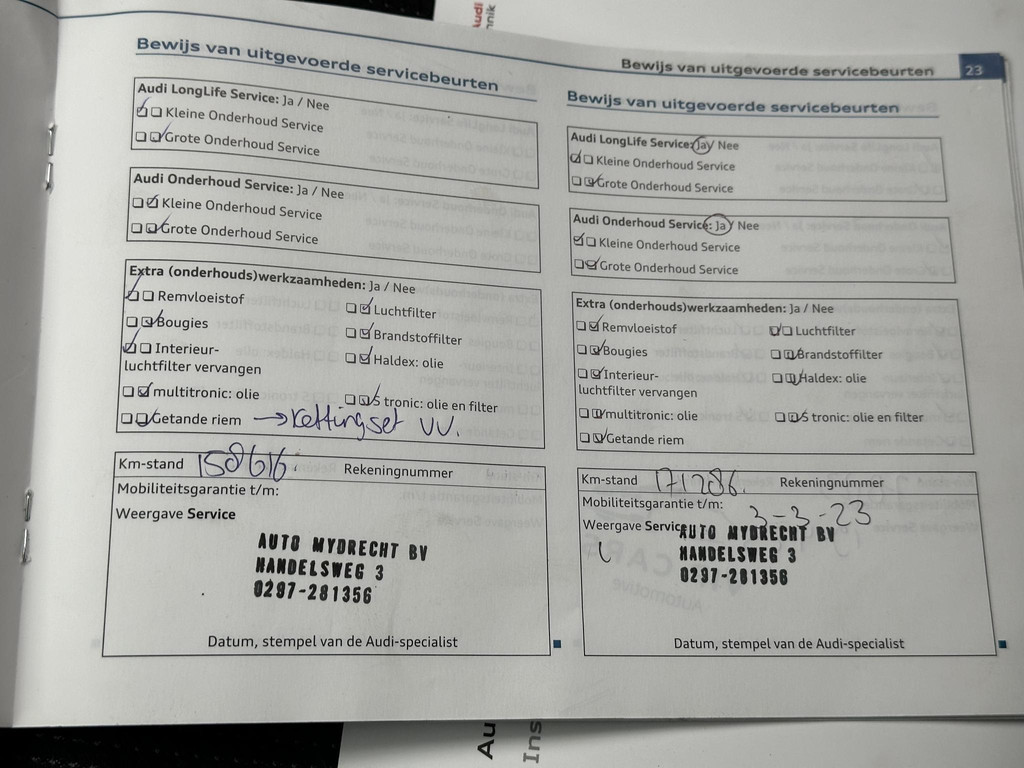 Audi
hnik
Bewijs van uitgevoerde servicebeurten
Audi LongLife Service: Ja / Nee
Kleine Onderhoud Service
Grote Onderhoud Service
Audi Onderhoud Service: Ja / Nee
Kleine Onderhoud Service
Grote Onderhoud Service
Extra (onderhouds)werkzaamheden: Ja / Nee
Remvloeistof
Luchtfilter
Bougies
Brandstoffilter
Interieur-
luchtfilter vervangen
Haldex: olie
multitronic: olie
S tronic: olie en filter
Getande riem → kettingset VV.
Km-stand 158616. Rekeningnummer
Mobiliteitsgarantie t/m:
Weergave Service
AUTO MYDRECHT BV
HANDELSWEG 3
0297-281356
Datum, stempel van de Audi-specialist
Bewijs van uitgevoerde servicebeurten 23
Bewijs van uitgevoerde servicebeurten
Audi LongLife Service: Ja / Nee
Kleine Onderhoud Service
Grote Onderhoud Service
Audi Onderhoud Service: Ja / Nee
Kleine Onderhoud Service
Grote Onderhoud Service
Extra (onderhouds)werkzaamheden: Ja / Nee
Remvloeistof
Luchtfilter
Bougies
Brandstoffilter
Interieur-
luchtfilter vervangen
Haldex: olie
multitronic: olie
S tronic: olie en filter
Getande riem
Km-stand 171286. Rekeningnummer
Mobiliteitsgarantie t/m: 3-3-23
Weergave Service
AUTO MYDRECHT BV
HANDELSWEG 3
0297-281356
Datum, stempel van de Audi-specialist
Au
Ins